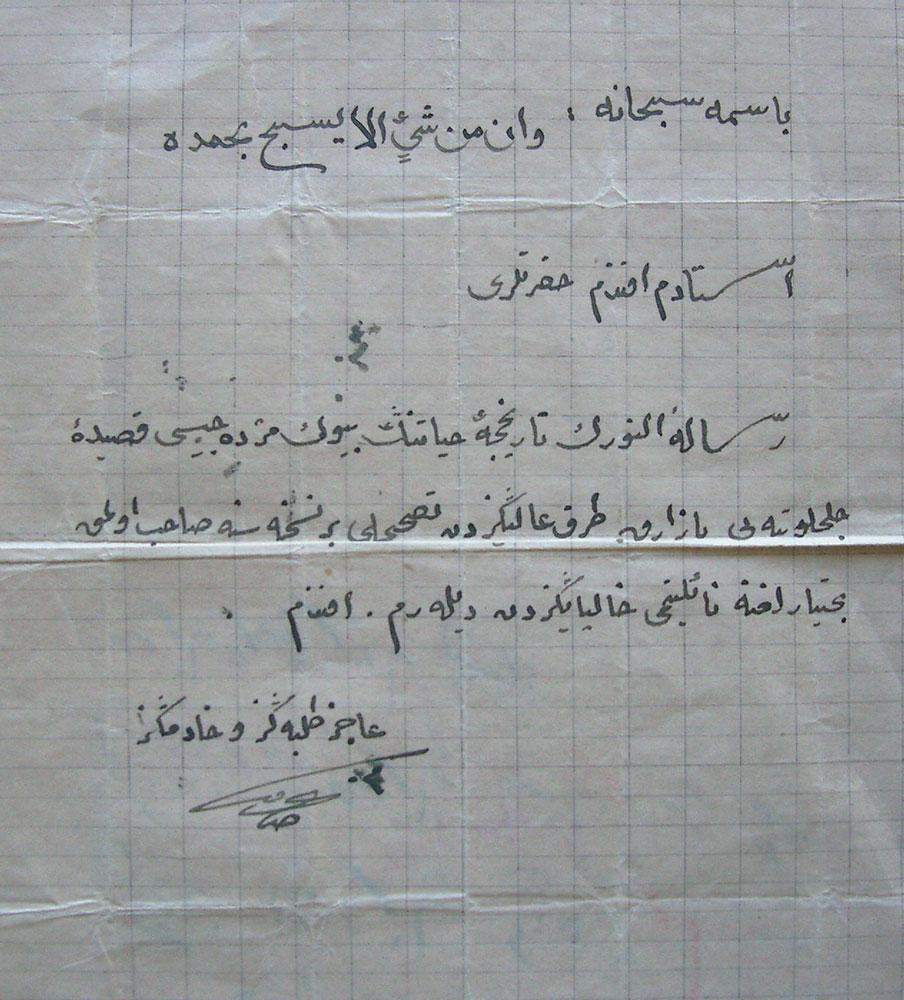 باسمه سبحانه : وان من شئٍ الا يسبح بحمده
استادم افندم حضرتلرى
رسالۀ النورك تاريخچۀ حياتنڭ بيوك مژده جيسى قصيدۀ
جلجلوتيه يى يازارق طرف عاليڭزدن تصحيحلى بر نسخه سنه صاحب اولمق
بختيارلغنه نائليتمى خاكپايڭزدن ديله رم . افندم
عاجز طلبه ڭز و خادمڭز